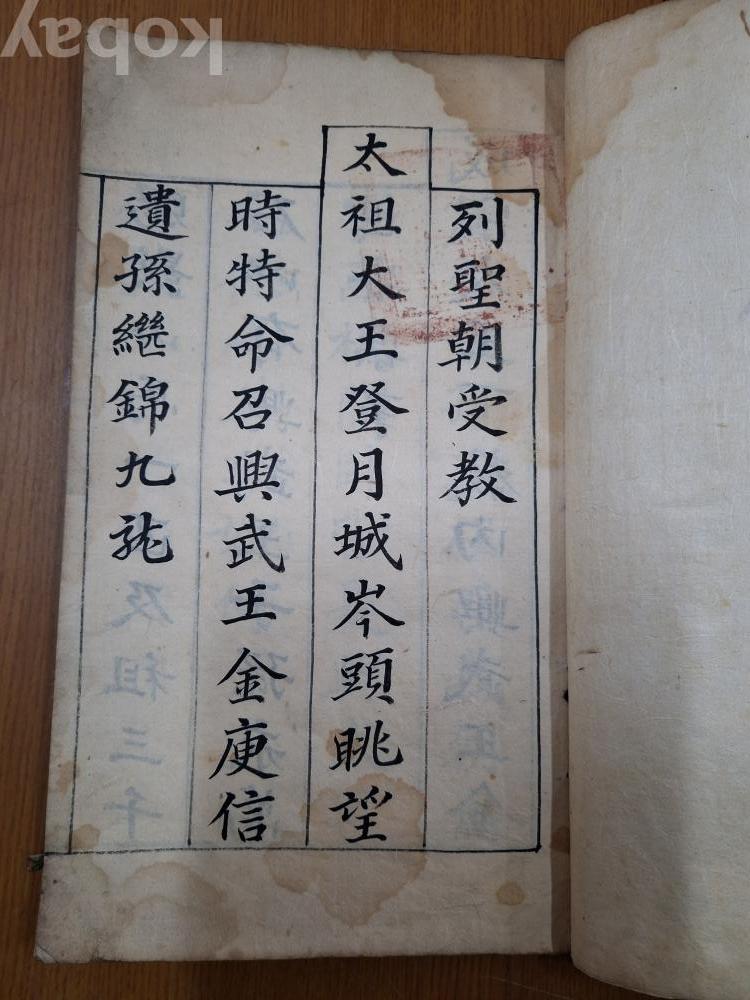 列聖朝受教
太祖大王登月城岑頭眺望
時特命召興武王金庾信
遺孫継錦九䂓
kobay